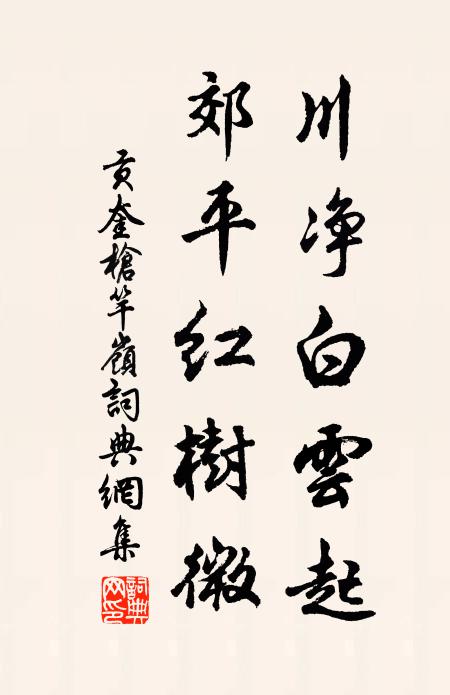 川净白雲起
郊平紅樹微
贡奎槍竿嶺詞典網集
詞典网印